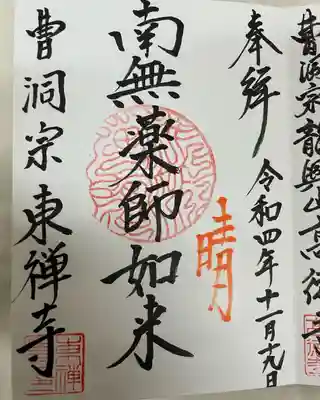 曹洞宗龍興山高徳寺
奉拝 令和四年十一月十九日
晴
南無薬師如来
曹洞宗東禅寺